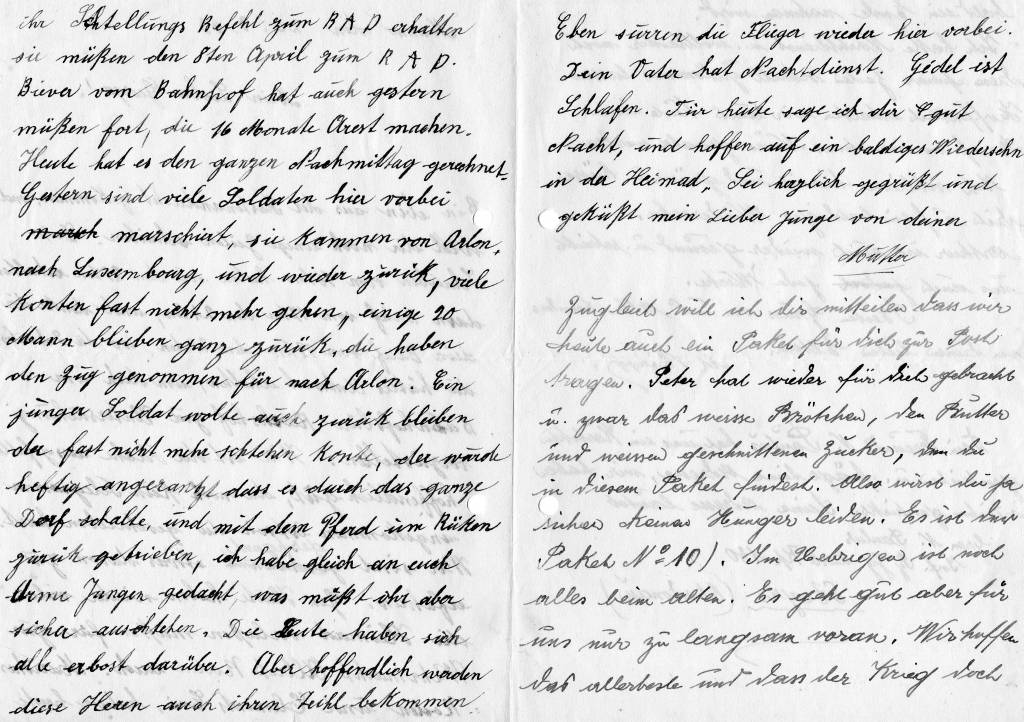 ihr Schtellungs Befehl zum R A D erhalten
sie müßen den 8ten April zum R A D.
Biever vom Bahnhof hat auch gestern
müßen fort, die 16 Monate Arest machen.
Heute hat es den ganzen Nachmittag gerechnet.
Gestern sind viele Soldaten hier vorbei
marsch marschiert, sie kammen von Arlon,
nach Luxembourg, und wieder zurük, viele
konten fast nicht mehr gehen, einige 20
Mann blieben ganz zurük, die haben
den Zug genommen für nach Arlon. Ein
junger Soldat wolte auch zurük bleiben
der fast nicht mehr schtehen konte, der wurde
heftig angeranzt dass es durch das ganze
Dorf schalte, und mit dem Pferd im Rüken
zurük getrieben, ich habe gleich an euch
Arme Jungen gedacht, was müßt ihr aber
sicher auschtehen. Die Leute haben sich
alle erbost darüber. Aber hoffendlich werden
diese Heren auch ihren Teihl bekommen.
Eben surren die Flieger wieder hier vorbei.
Dein Vater hat Nachtdienst. Gödel ist
Schlafen. Für heute sage ich dir gut
Nacht, und hoffen auf ein baldiges Wiedersehn
in der Heimad. Sei herzlich gegrüßt und
geküßt mein Lieber Junge von deiner
Mutter
Zugleich will ich dir mitteilen dass wir
heute auch ein Paket für dich zur Post
tragen. Peter hat wieder für dich gebracht
u. zwar das weisse Brötchen, den Butter
und weissen geschnittenen Zucker, den du
in diesem Paket findest. Also wirst du ja
sicher keinen Hunger leiden. Es ist das
Paket No 10). Im Uebrigen ist noch
alles beim alten. Es geht gut aber für
uns nur zu langsam voran. Wir hoffen
das allerbeste und dass der Krieg doch